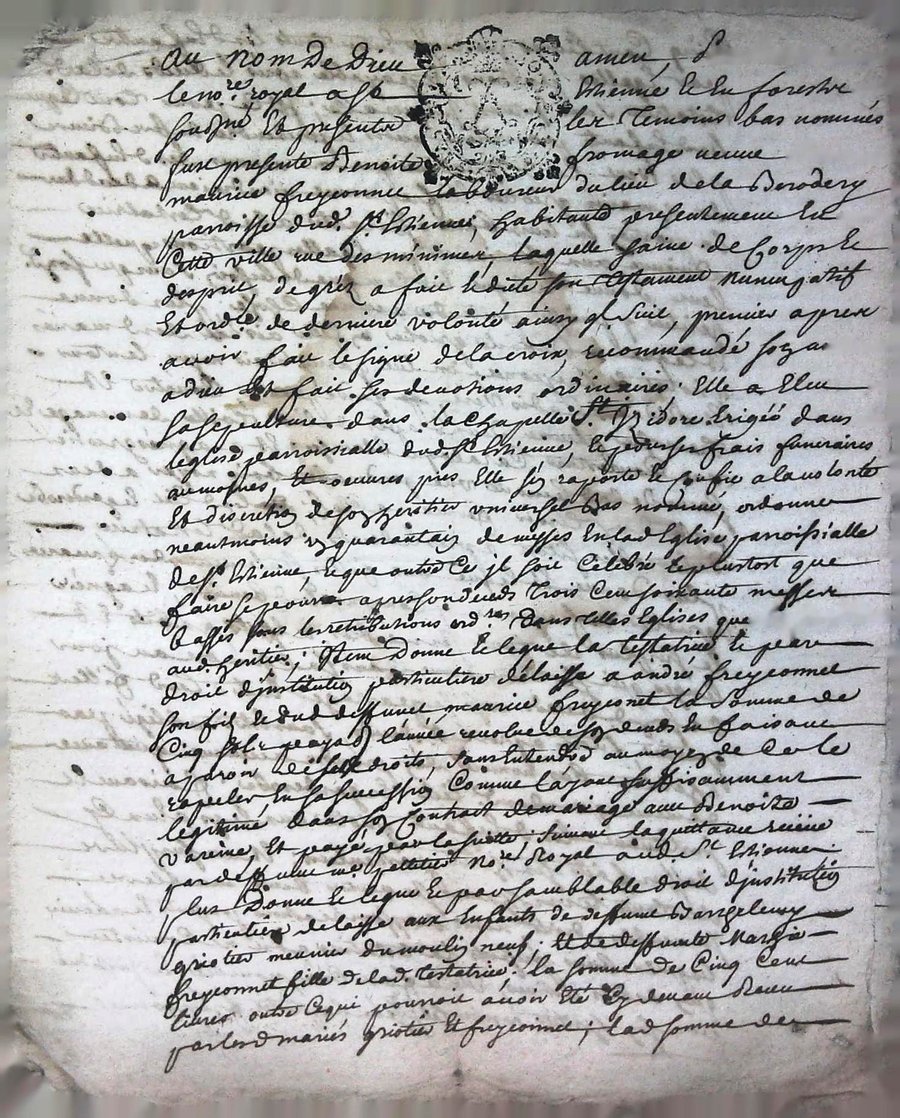 Au nom De Dieu amen, &
le no.re royal a St Estienne En forestz
soubsné Et presents les Temoins bas nommés
fust presente Benoite fromage veuve
maurice freyconnet laboureur du lieu de la Berodery
parroisse dud. St Estienne, habitante presentement En
Cette ville rue des minimes, laquelle saine de Corps Et
desprit de gréz a fait Et dicté son testament Nuncupatif
Et ordce de derniere volonté ainsy q. suit, premier apres
avoir fait le signe de la croix, recommandé son a
a dieu Et fait ses devotions ordinaires. Elle a Eleu
sa sepulture dans la chapelle St. Izidore Erigée dans
leglise parroissialle dud St Estienne, Et pour ses frais funeraires
aumosnes, Et oeuvres pies Elle s'en raporte Et confie a la volonté
Et discretion de son heritier universel Bas nommé, ordonne
neantmoins un quarantain de messes En lad Eglise parroissialle
de St. Estienne, Et que outre Ce il soit Célébré le plustost que
faire se pourra apres son deceds Trois Cent soixante messes
Basses sous les retributions ord.res Dans telles Eglises que
aud. heritier; Item Donne Et legue la testatrice Et par
droit d'institution particuliere délaisse a andré freyconnet
son fils Et dud deffunct maurice freyconet la Somme de
Cinq sols payable l'année revolue de son deceds En faisant
apparoir de ses droits, sans Entendre au moyen de Ce le
rapeler En sa succession Comme l'ayant suffisamment
legitimé dans son Contract de mariage avec Benoite
vareine, Et payé par la suitte suivant la quittance receüe
par deffunct me pelletier No.re Royal aud St. Estienne
plus Donne Et legue Et par semblable droit d'institution
particuliere delaisse aux Enfants de deffunct Barthelemy
griotier meunier du moulin neuf, Et de deffuncte Marie
freyconnet fille de lad. testatrice. la somme de Cinq Cent
livres outre Ce qui pourroit avoir Eté Cy devant Receu
par lesd mariés griotier Et freyconnet; lad somme de